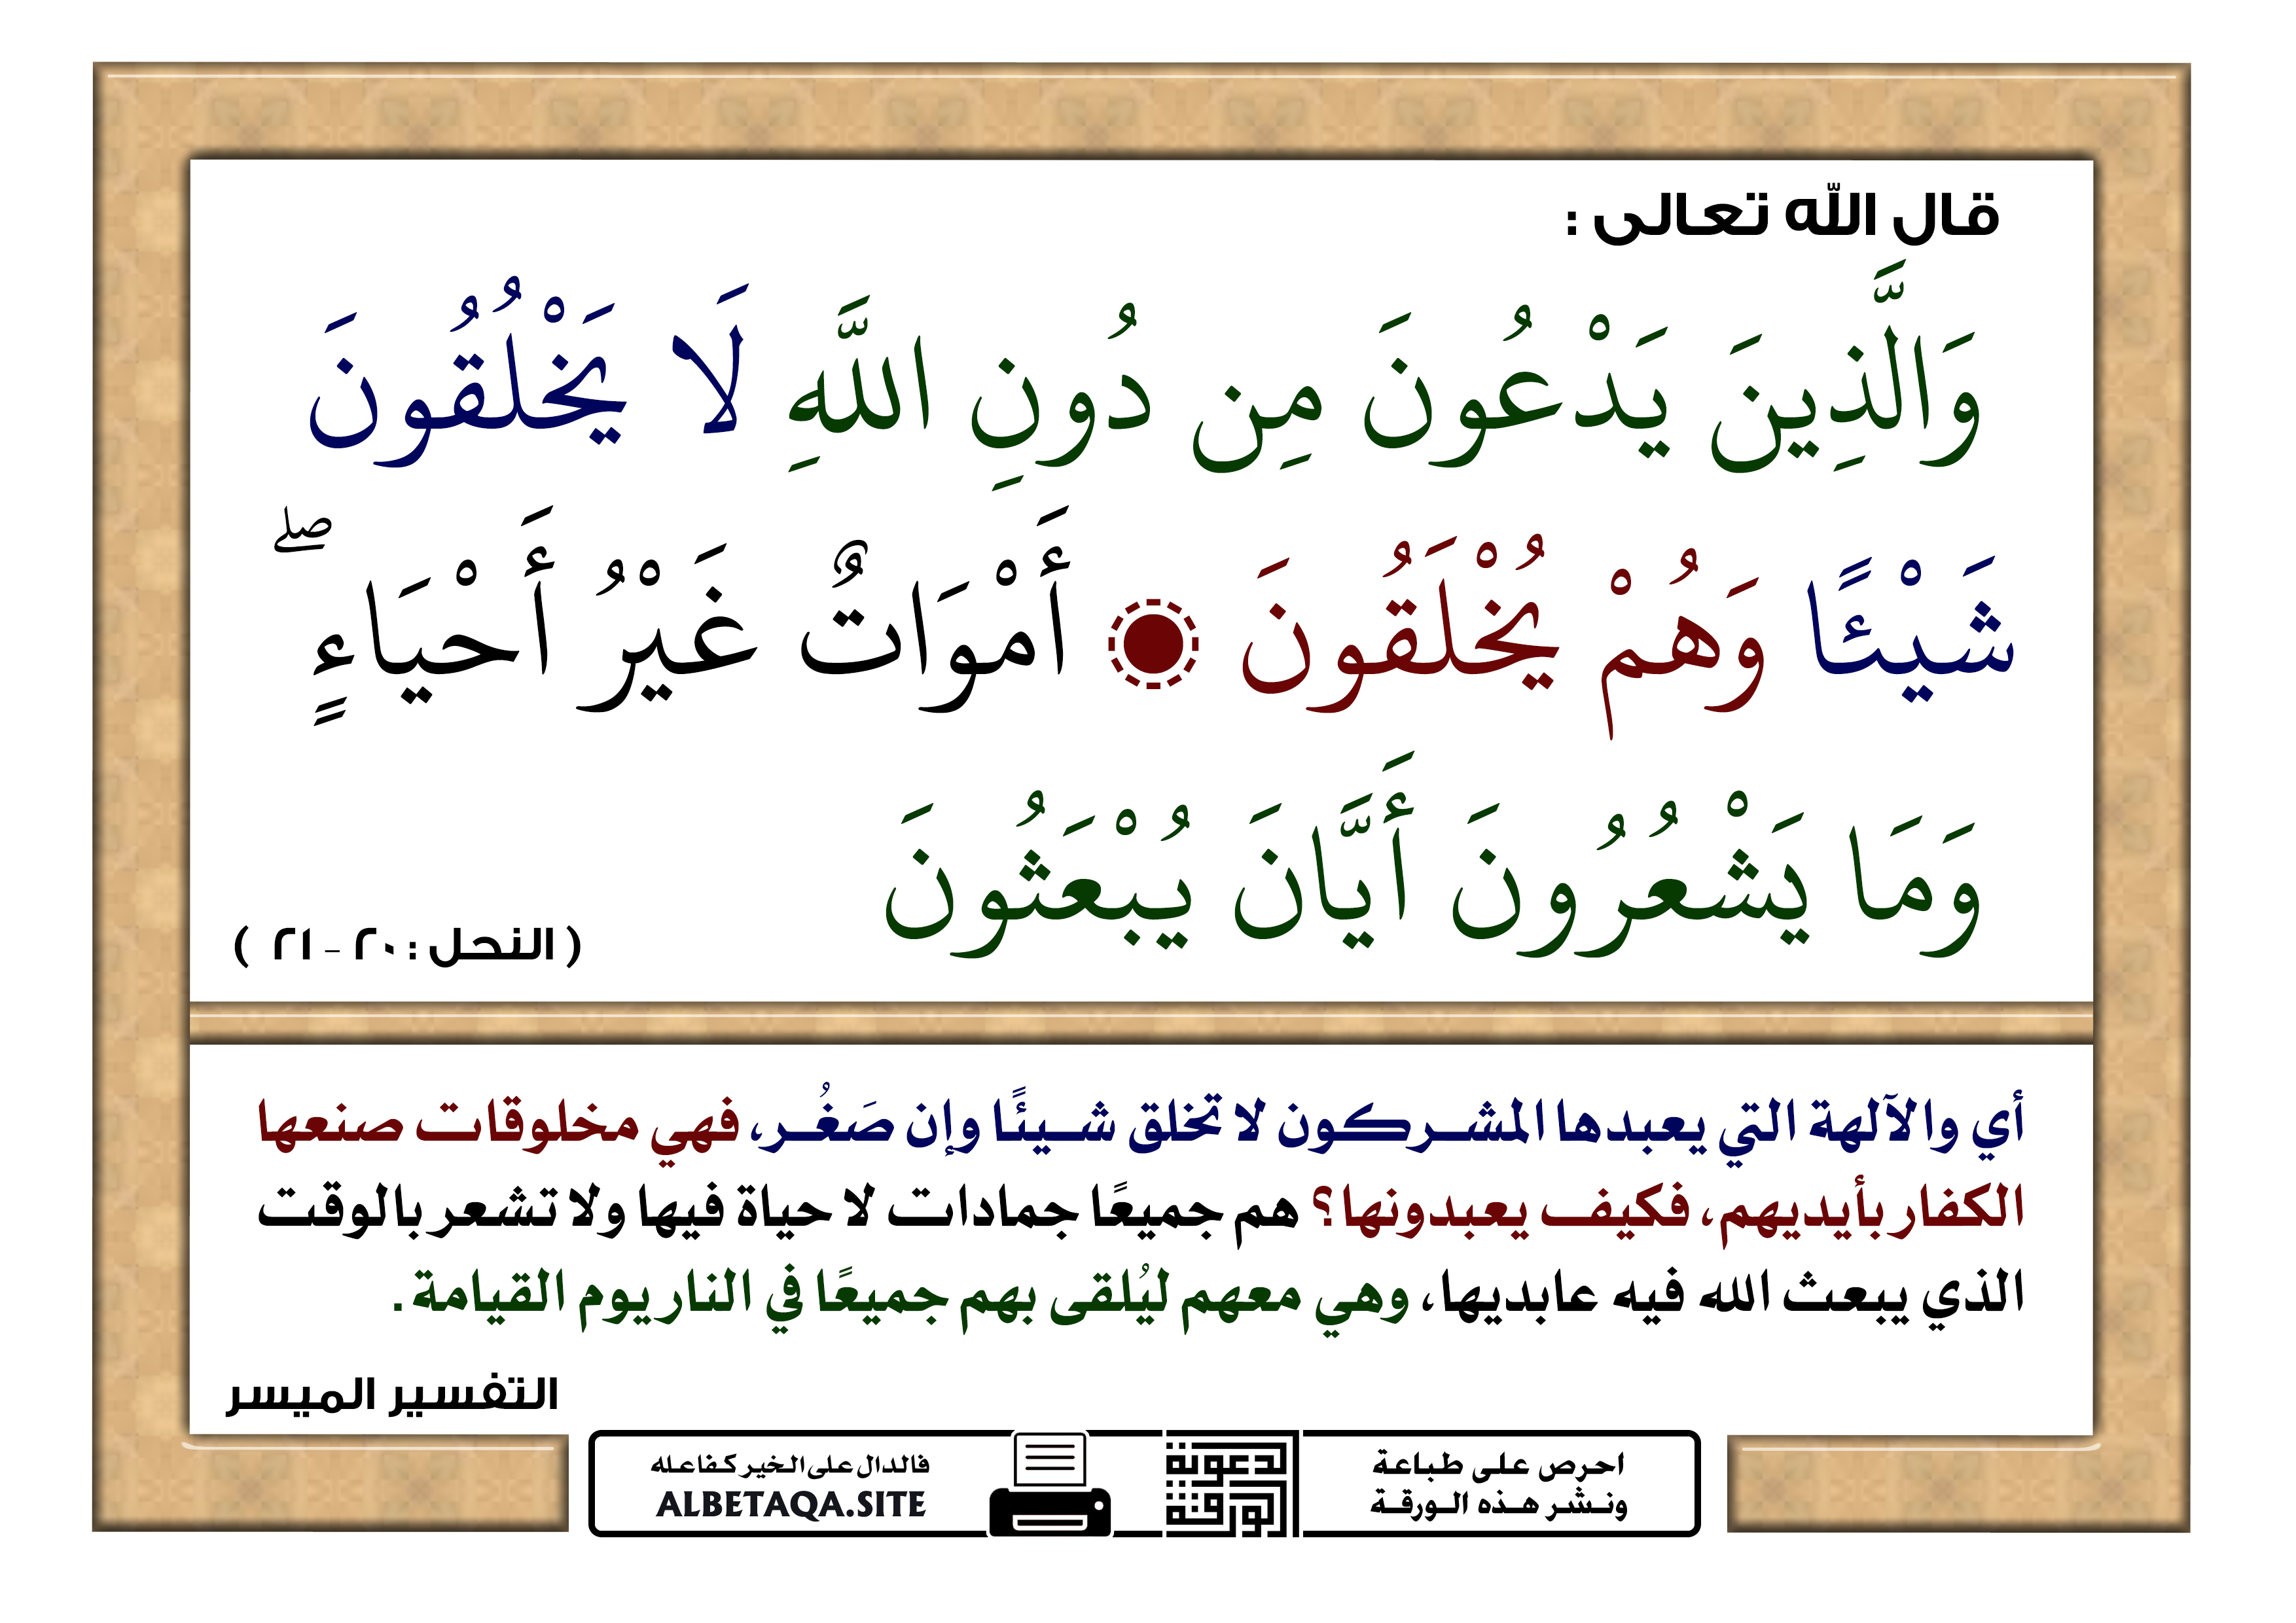 قال الله تعالى :
وَالَّذِينَ يَدْعُونَ مِن دُونِ اللَّهِ لَا يَخْلُقُونَ
شَيْئًا وَهُمْ يُخْلَقُونَ ۝ أَمْوَاتٌ غَيْرُ أَحْيَاءٍ ۖ
وَمَا يَشْعُرُونَ أَيَّانَ يُبْعَثُونَ
( النحل : ٢٠ - ٢١ )
أي والآلهة التي يعبدها المشركون لا تخلق شيئًا وإن صَغُر، فهي مخلوقات صنعها
الكفار بأيديهم، فكيف يعبدونها؟ هم جميعًا جمادات لا حياة فيها ولا تشعر بالوقت
الذي يبعث الله فيه عابديها، وهي معهم ليُلقى بهم جميعًا في النار يوم القيامة .
التفسير الميسر
احرص على طباعة
ونشر هذه الورقة
الدعوية
الورقة
فالدال على الخير كفاعله
ALBETAQA.SITE